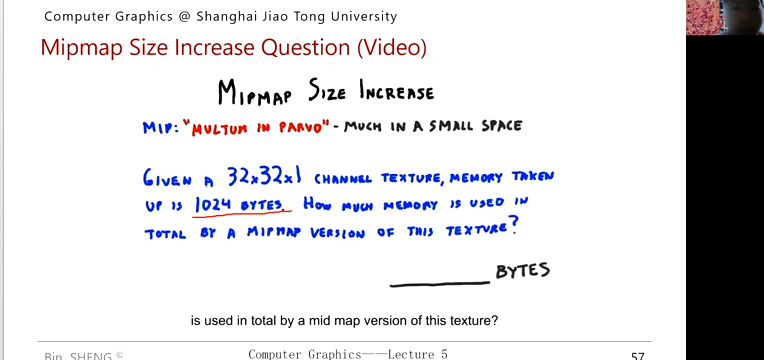 Computer Graphics @ Shanghai Jiao Tong University
Mipmap Size Increase Question (Video)
MIPMAP SIZE INCREASE
MIP: "MULTUM IN PARVO" - MUCH IN A SMALL SPACE
GIVEN A 32x32x1 CHANNEL TEXTURE, MEMORY TAKEN
UP IS 1024 BYTES. HOW MUCH MEMORY IS USED IN
TOTAL BY A MIPMAP VERSION OF THIS TEXTURE?
BYTES
is used in total by a mid map version of this texture?
Bin SHENG ©
Computer Graphics——Lecture 5
57